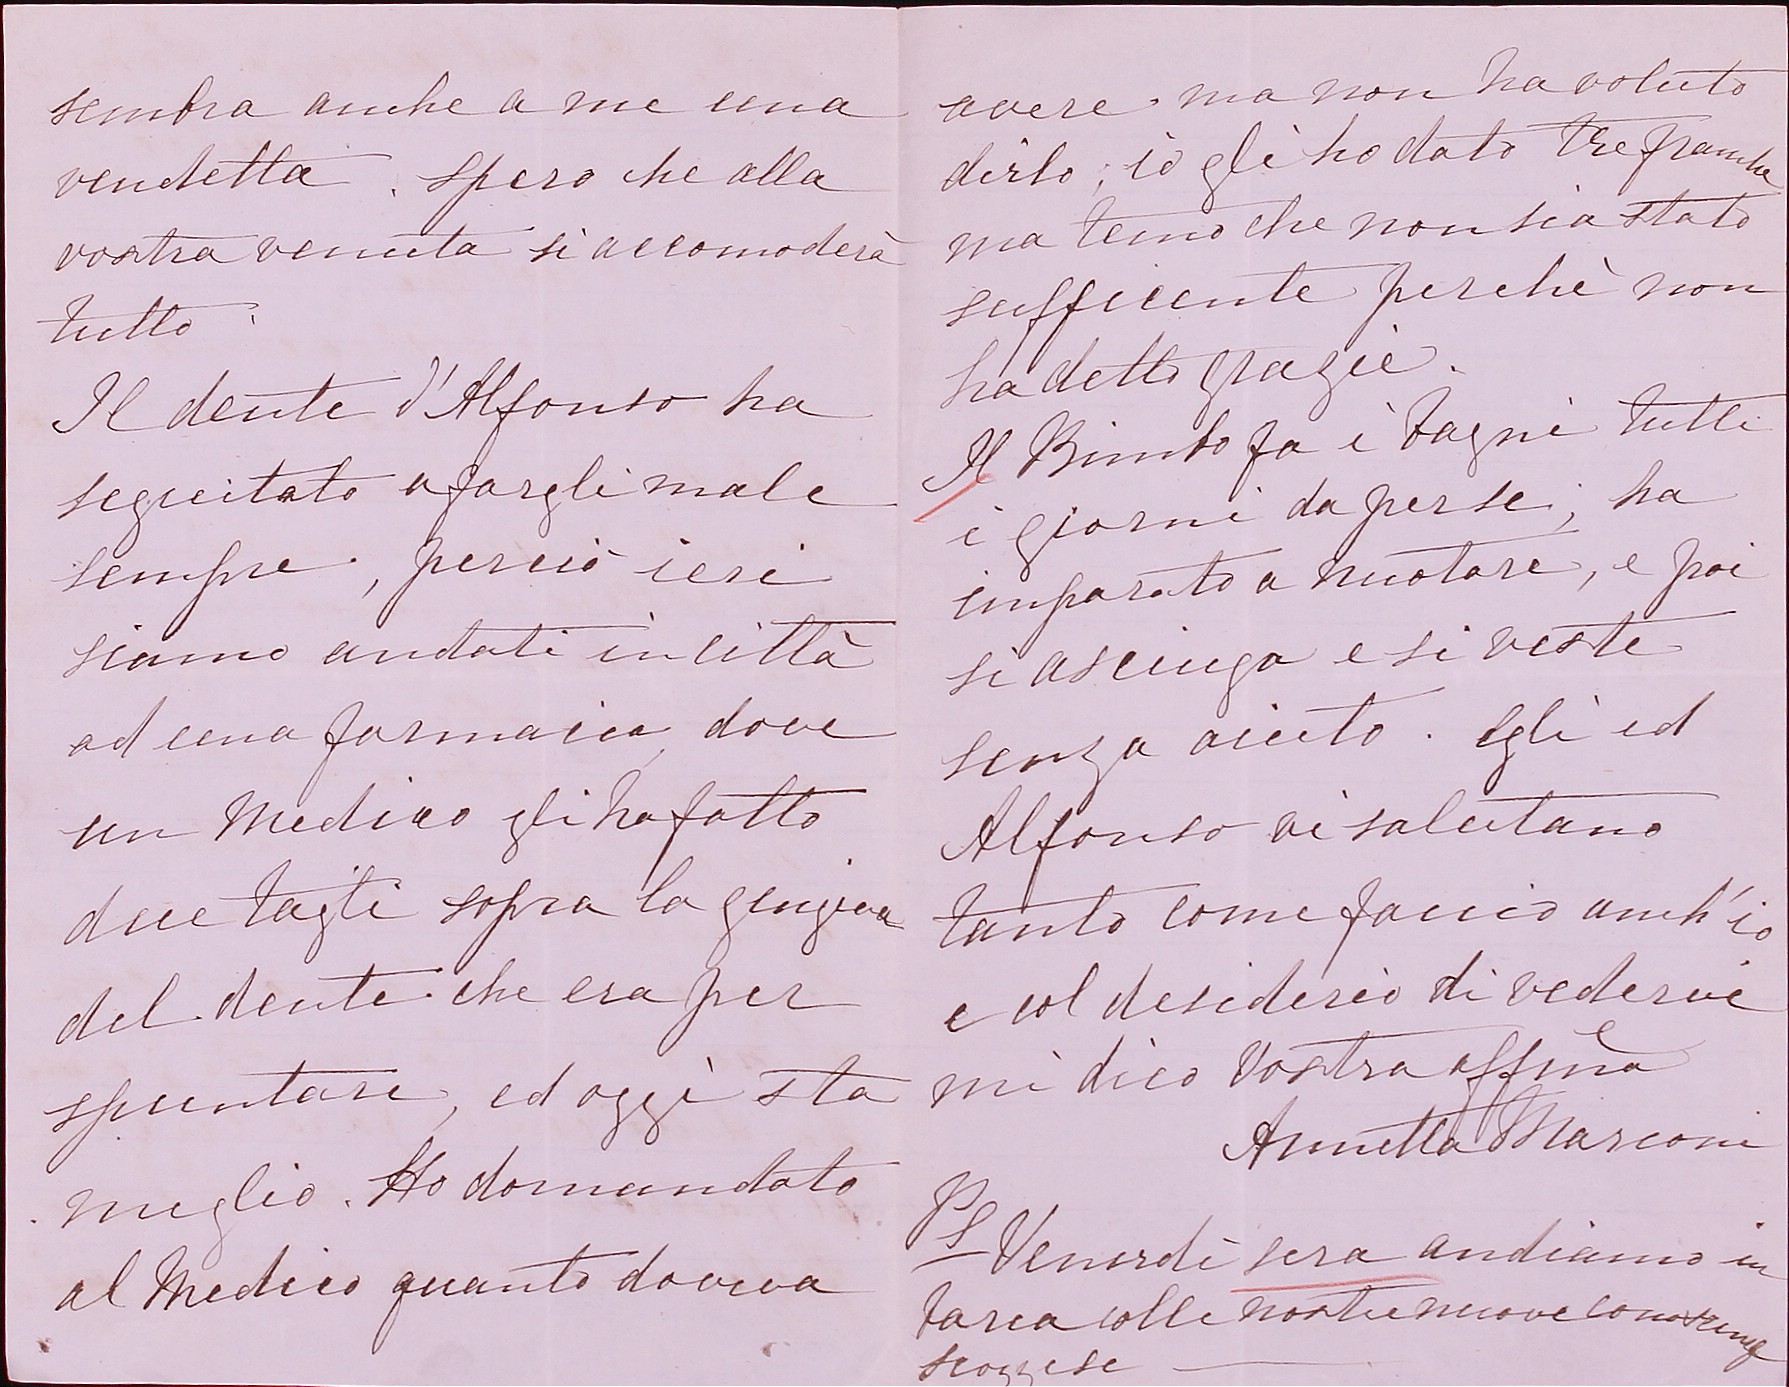 sembra anche a me una
vendetta. Spero che alla
vostra venuta si accomoderà
tutto.
Il dente d'Alfonso ha
seguitato a fargli male
sempre, perciò ieri
siamo andati in città
ad una farmacia, dove
un Medico gli ha fatto
due tagli sopra la gengiva
del dente che era per
spuntare, ed oggi sta
meglio. Ho domandato
al Medico quanto doveva
avere. ma non ha voluto
dirlo; io gli ho dato tre franche
ma temo che non sia stato
sufficente perchè non
ha detto grazie.
Il Bimbo fa i bagni tutti
i giorni da per se; ha
imparato a nuotare, e poi
si asciuga e si veste
senza aiuto. Egli ed
Alfonso vi salutano
tanto come faccio anch'io
e col desiderio di vedervi
mi dico vostra affma
Annetta Marconi
PS Venerdì sera andiamo in
barca colle nostre nuove conoscenze
scozzese